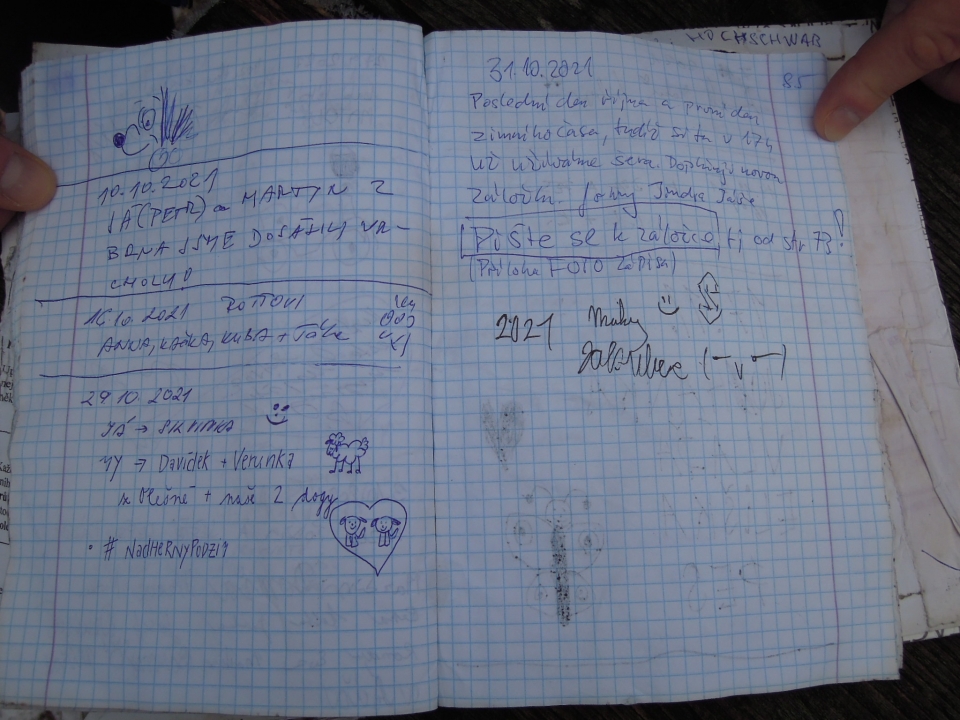 10.10.2021
JÁ (PETR) a MARTIN Z
BRNA JSME DOSÁHLI VR-
CHOLU!
16.10.2021 ROTTOVI
ANNA, KAČKA, KUBA +
29.10.2021
JÁ → 
MY → Davídek + Verunka
z Olešné + naše 2 dogy
# NadHERNYPODZIM
HOCHSCHWAB
85
31.10.2021
Poslední den října a první den
zimního času, tudíž si tu v 17h
už užíváme šera. Doplňuji novou
záložku. Jindra
Pište se k záložce tj od str 73!
(Příloha FOTO zápisů)
2021